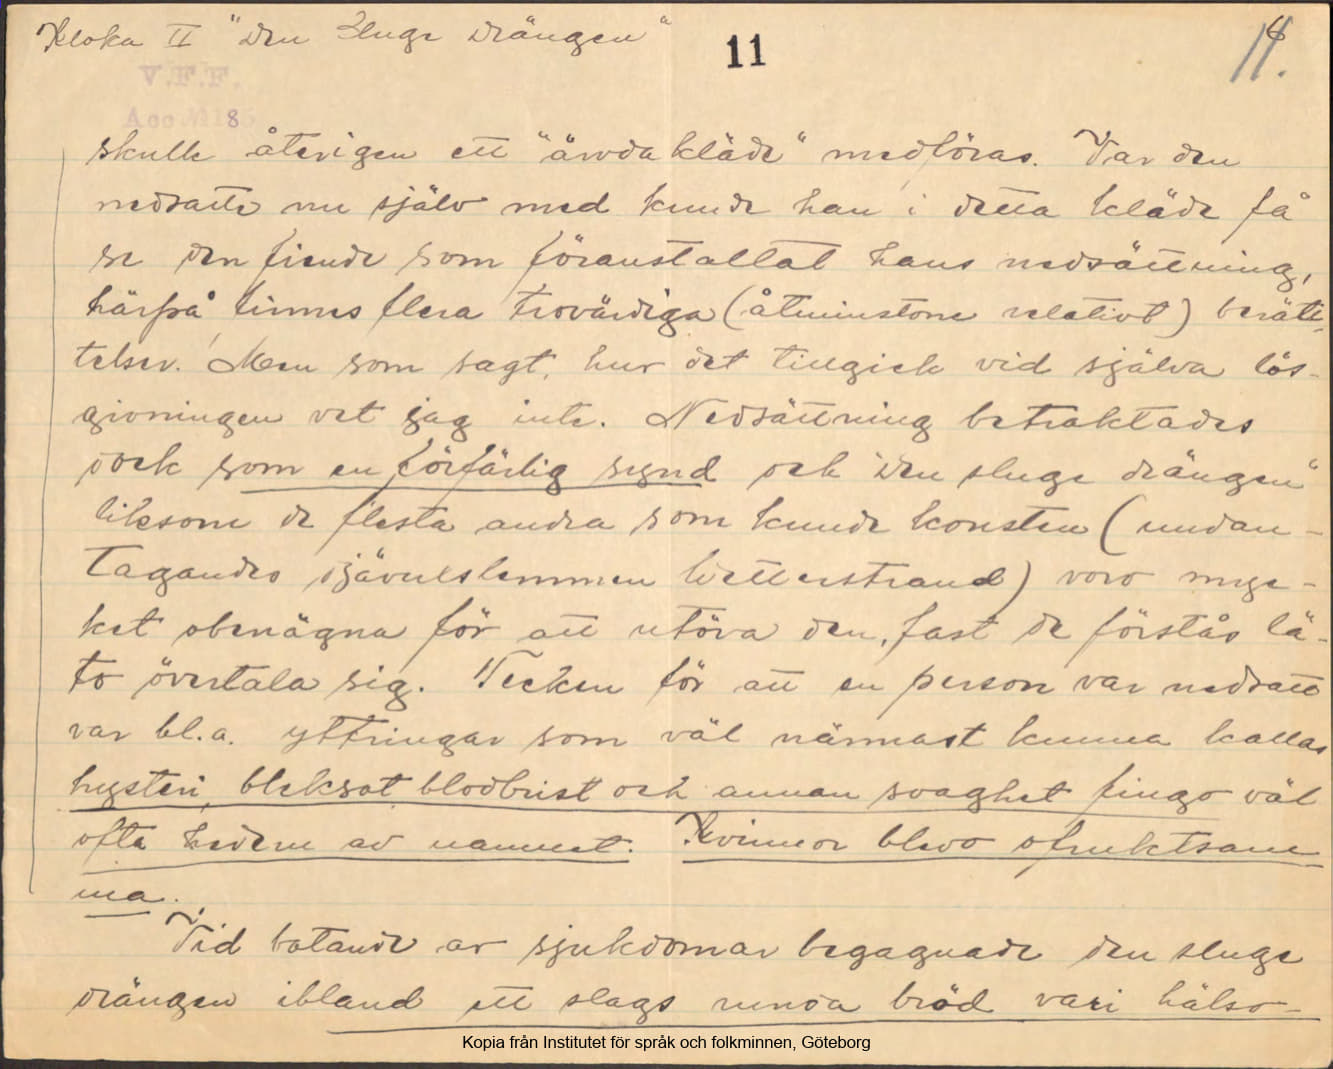 Kloka II "Den Sluge Drängen"
11
11.
6
V.F.F.
Acc. M 185
skulle återigen ett "ärvda kläde" medföras. Var den
nedsatte nu själv med kunde han i detta kläde få
se den fiende som föranstaltat hans nedsättning,
härpå finnes flera trovärdiga (åtminstone relativt) berät-
telser. Men som sagt, hur det tillgick vid själva lös-
givningen vet jag inte. Nedsättning betraktades
dock som en förfärlig synd och "den sluge drängen"
liksom de flesta andra som kunde konsten (undan-
tagandes djävulslemmen Wetterstrand) voro myc-
ket obenägna för att utöva den, fast de förstås lä-
to övertala sig. Tecken för att en person var nedsatt
var bl.a. yttringar som väl närmast kunna kallas
hysteri, bleksot blodbrist och annan svaghet fingo väl
ofta hedern av namnet. Kvinnor blevo ofruktsam-
ma.
Vid botande av sjukdomar begagnade den sluge
drängen ibland ett slags runda bröd vari hälso-
Kopia från Institutet för språk och folkminnen, Göteborg